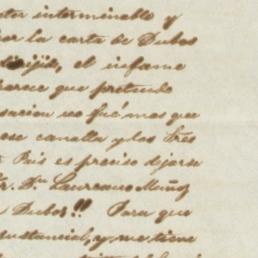 interminable y
por la carta de Dubos
dirijió, el infame
parece que pretende
sacion no fué mas que
ese canalla y los tres
Pais es preciso dejarse
Sr. Dn Laureano Muñoz
Dubos!! Para que
sustancial, y me tiene